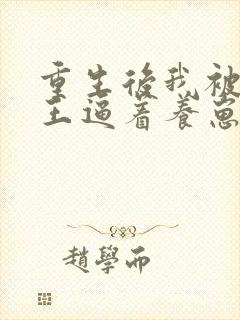 重生後我被
王逼着養崽
趙學而